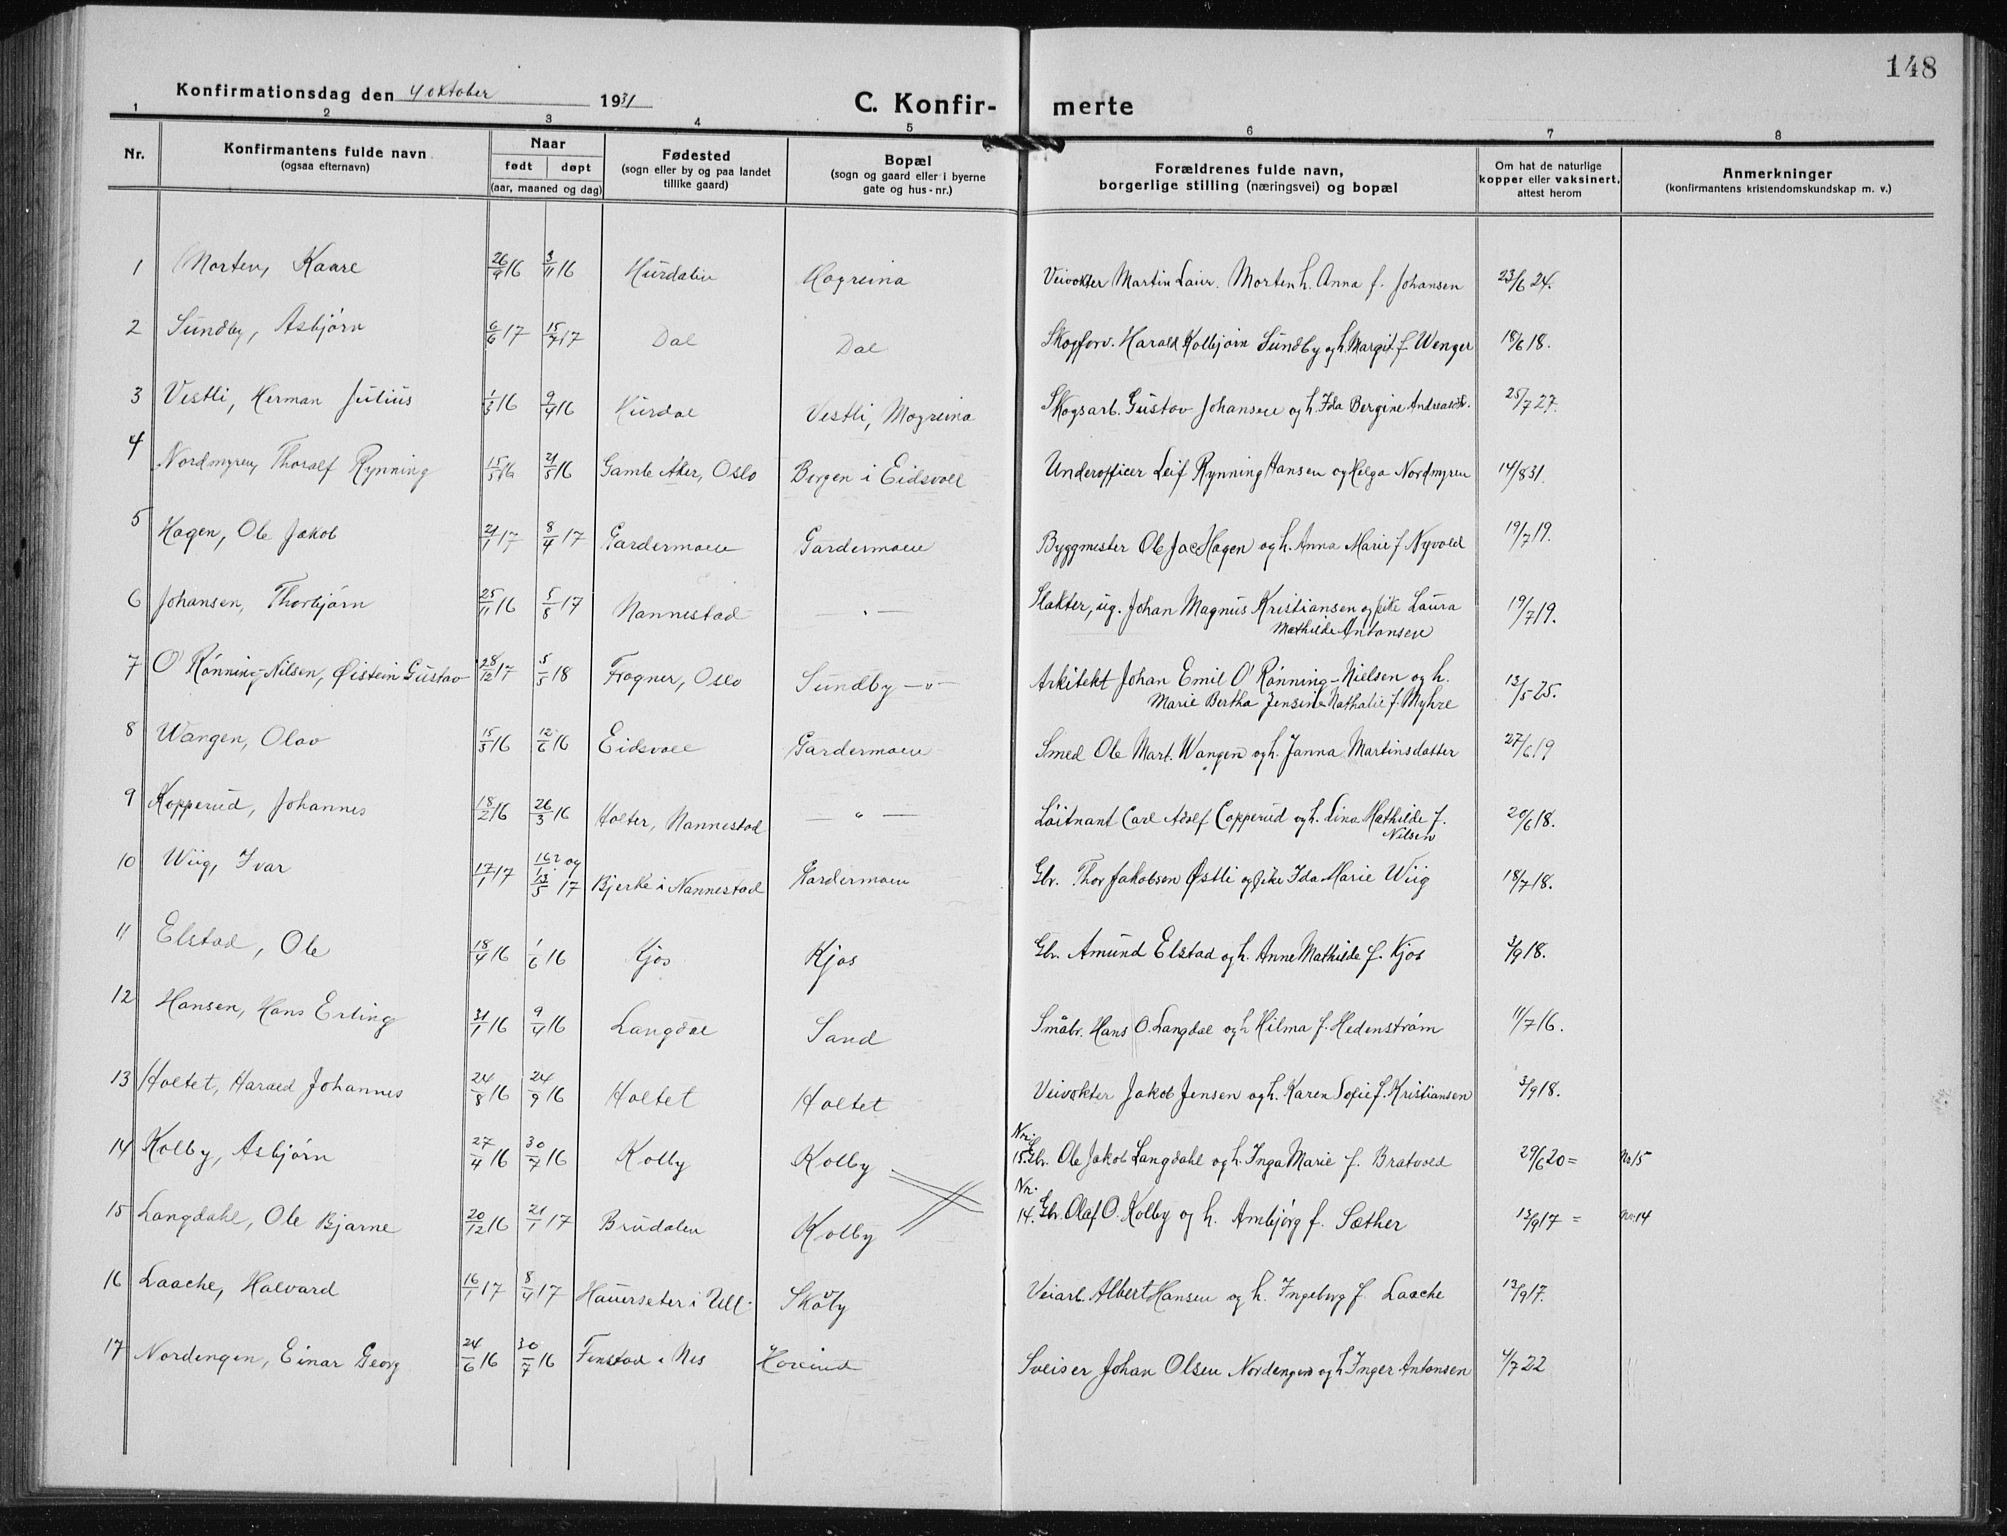 148
Konfirmationsdag den 4 oktober 1931
C. Konfir- merte
1 2 3 4 5 6 7 8
Nr.
Konfirmantens fulde navn
(ogsaa efternavn)
Naar
født døpt
(aar, maaned og dag)
Fødested
(sogn eller by og paa landet
tillike gaard)
Bopæl
(sogn og gaard eller i byerne
gate og hus-nr.)
Forældrenes fulde navn,
borgerlige stilling (næringsvei) og bopæl
Om hat de naturlige
kopper eller vaksinert,
attest herom
Anmerkninger
(konfirmantens kristendomskundskap m. v.)
1 Morten, Kaare 26/9 16 3/11 16 Hurdalen Mogreina Veivokter Martin Laur. Morten h. Anna f. Johansen 23/6 24.
2 Sundby, Asbjørn 6/6 17 15/7 17 Dal Dal Skogforv. Harald Kolbjørn Sundby og h. Margit f. Wenger 18/6 18.
3 Vestli, Herman Julius 1/3 16 9/4 16 Hurdal Vestli, Mogreina Skogsarb. Gustav Johansen og h. Ida Bergine Andreasd. 25/7 27.
4 Nordmyren, Thoralf Rynning 15/3 16 21/5 16 Gamle Aker, Oslo Borgen i Eidsvoll Underofficer Leif Rynning Hansen og Helga Nordmyren 14/8 31.
5 Hagen, Ole Jakob 21/1 17 8/4 17 Gardermoen Gardermoen Byggmester Ole Jac Hagen og h. Anna Marie f. Nyvold 19/7 19.
6 Johansen, Thorbjørn 25/11 16 5/8 17 Nannestad — " — Slakter, ug. Johan Magnus Kristiansen og pike Laura
Mathilde Antonsen 19/7 19.
7 O' Rønning-Nilsen, Øistein Gustav 28/12 17 5/5 18 Frogner, Oslo Sundby —"— Arkitekt Johan Emil O' Rønning-Nielsen og h.
Marie Bertha Jensine Nathalie f. Myhre 13/5 25.
8 Wangen, Olav 15/3 16 12/6 16 Eidsvoll Gardermoen Smed Ole Mart. Wangen og h. Janna Martinsdatter 27/6 19
9 Kopperud, Johannes 18/2 16 26/3 16 Holter, Nannestad — " — Løitnant Carl Adolf Copperud og h. Lina Mathilde f.
Nilsen 20/6 18.
10 Wiig, Ivar 17/1 17 og 13/5 17 Bjerke i Nannestad Gardermoen Gbr. Thor Jakobsen Østli og pike Ida Marie Wiig 18/7 18.
11 Elstad, Ole 18/4 16 1/6 16 Kjos Kjos Gbr. Amund Elstad og h. Anne Mathilde f. Kjos 3/9 18.
12 Hansen, Hans Erling 31/1 16 9/4 16 Langdal Sand Småbr. Hans O. Langdal og h Hilma f. Hedenstrøm 11/7 16.
13 Holtet, Harald Johannes 24/8 16 24/9 16 Holtet Holtet Veivokter Jakob Jensen og h. Karen Sofie f. Kristiansen 3/9 18.
14 Kolby, Asbjørn 27/4 16 30/7 16 Kolby Kolby Nr. 15. Gbr. Ole Jakob Langdahl og h. Inga Marie f. Bratvold 29/6 20 = No 15
15 Langdahl, Ole Bjarne 20/12 16 21/1 17 Brudalen Kolby Nr. 14. Gbr. Olaf O. Kolby og h. Ambjørg f. Sæther 13/9 17 = No 14
16 Laache, Halvard 16/1 17 8/4 17 Hauerseter i Ull. Skåby Veiarb. Albert Hansen og h. Ingeborg f. Laache 13/9 17.
17 Nordengen, Einar Georg 24/6 16 30/7 16 Fenstad i Nes Hovind Sveiser Johan Olsen Nordengen og h Inger Antonsen 4/7 22